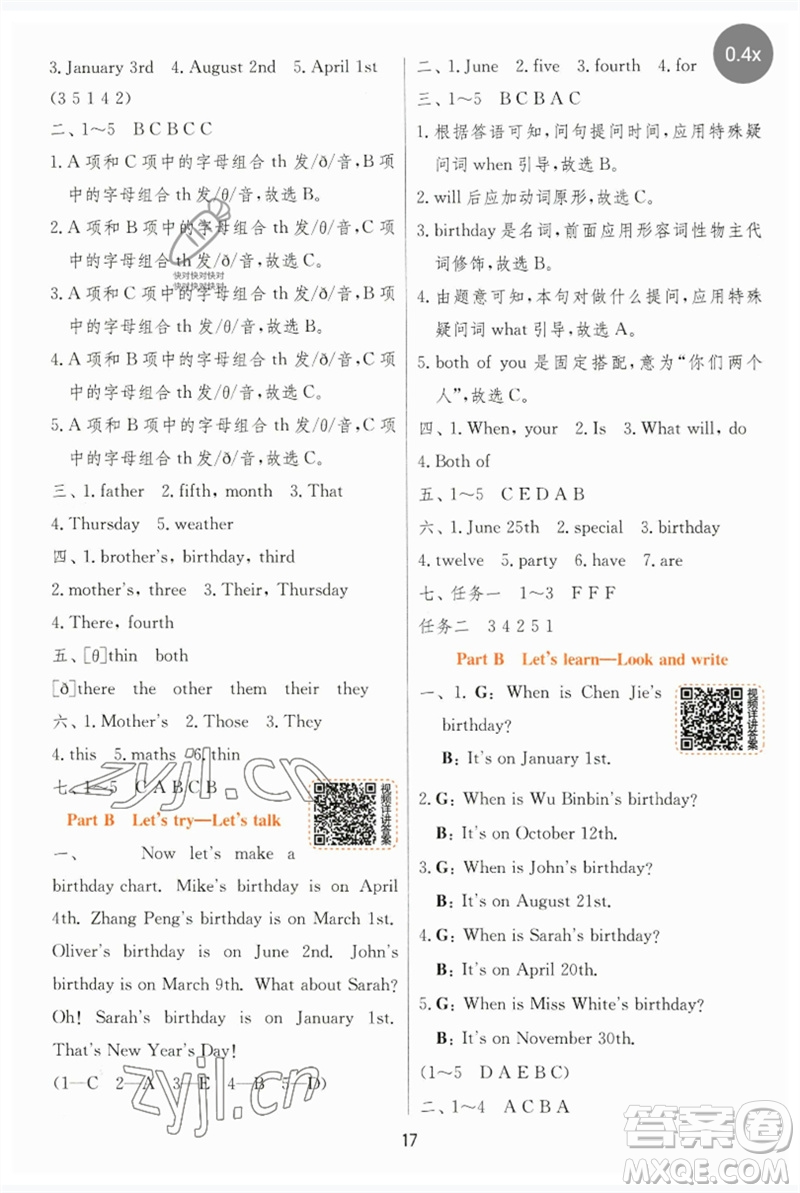 0.4x
3. January 3rd 4. August 2nd 5. April 1st
(3 5 1 4 2)
二、1～5 B C B C C
1. A 项和 C 项中的字母组合 th 发/ð/音,B 项
中的字母组合 th 发/θ/音,故选 B。
2. A 项和 B 项中的字母组合 th 发/ð/音,C 项
中的字母组合 th 发/θ/音,故选 C。
快对快对快对
快对快对快对
3. A 项和 C 项中的字母组合 th 发/ð/音,B 项
中的字母组合 th 发/θ/音,故选 B。
4. A 项和 B 项中的字母组合 th 发/ð/音,C 项
中的字母组合 th 发/θ/音,故选 C。
5. A 项和 B 项中的字母组合 th 发/θ/音,C 项
中的字母组合 th 发/ð/音,故选 C。
三、1. father 2. fifth, month 3. That
4. Thursday 5. weather
四、1. brother's, birthday, third
2. mother's, three 3. Their, Thursday
4. There, fourth
五、[θ]thin both
[ð]there the other them their they
六、1. Mother's 2. Those 3. They
4. this 5. maths 6. thin
七、1～5 C A B C B
zyjl.cn
视频详讲答案
Part B Let's try—Let's talk
一、 Now let's make a
birthday chart. Mike's birthday is on April
4th. Zhang Peng's birthday is on March 1st.
Oliver's birthday is on June 2nd. John's
birthday is on March 9th. What about Sarah?
Oh! Sarah's birthday is on January 1st.
That's New Year's Day!
(1—C 2—A 3—E 4—B 5—D)
zyjl.cn
二、1. June 2. five 3. fourth 4. for
三、B C B A C
1. 根据答语可知,问句提问时间,应用特殊疑
问词 when 引导,故选 B。
2. will 后应加动词原形,故选 C。
3. birthday 是名词,前面应用形容词性物主代
词修饰,故选 B。
4. 由题意可知,本句对做什么提问,应用特殊
疑问词 what 引导,故选 A。
5. both of you 是固定搭配,意为“你们两个
人”,故选 C。
四、1. When, your 2. Is 3. What will, do
4. Both of
五、1～5 C E D A B
六、1. June 25th 2. special 3. birthday
4. twelve 5. party 6. have 7. are
七、任务一 1～3 F F F
任务二 3 4 2 5 1
Part B Let's learn—Look and write
一、1. G: When is Chen Jie's
birthday?
B: It's on January 1st.
视频详讲答案
2. G: When is Wu Binbin's birthday?
B: It's on October 12th.
3. G: When is John's birthday?
B: It's on August 21st.
4. G: When is Sarah's birthday?
B: It's on April 20th.
5. G: When is Miss White's birthday?
B: It's on November 30th.
(1～5 D A E B C)
二、1～4 A C B A
17
答案圈
MXQE.COM